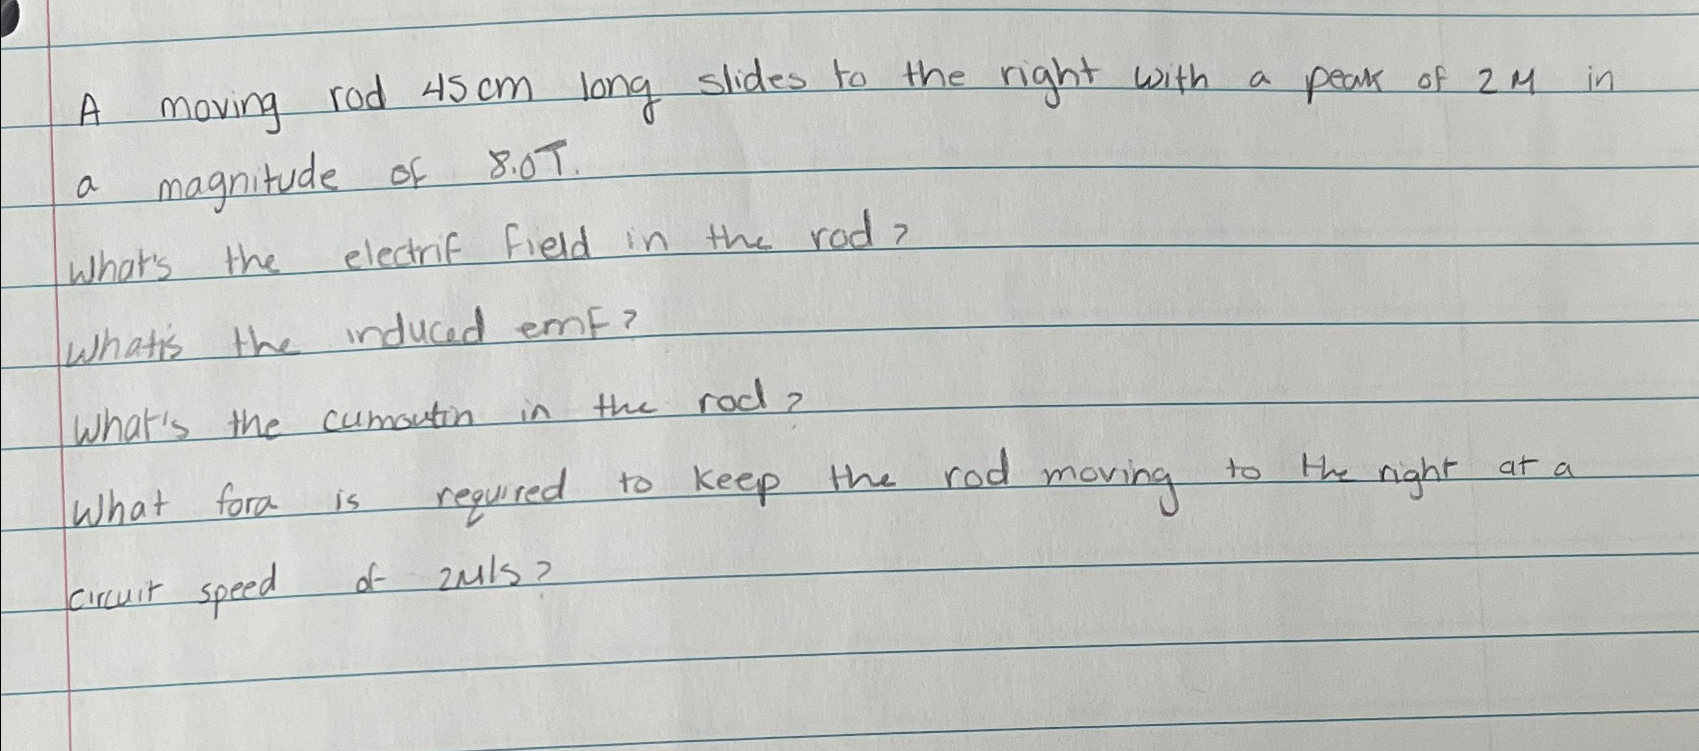 A moving rod 45cm long slides to the right with a peak of 2M in
a magnitude of 8.0T.
What's the electrif field in the rod?
What's the induced emf?
What's the cumoutin in the rod?
What fora is required to keep the rod moving to the right at a
circuit speed of 2M/s?